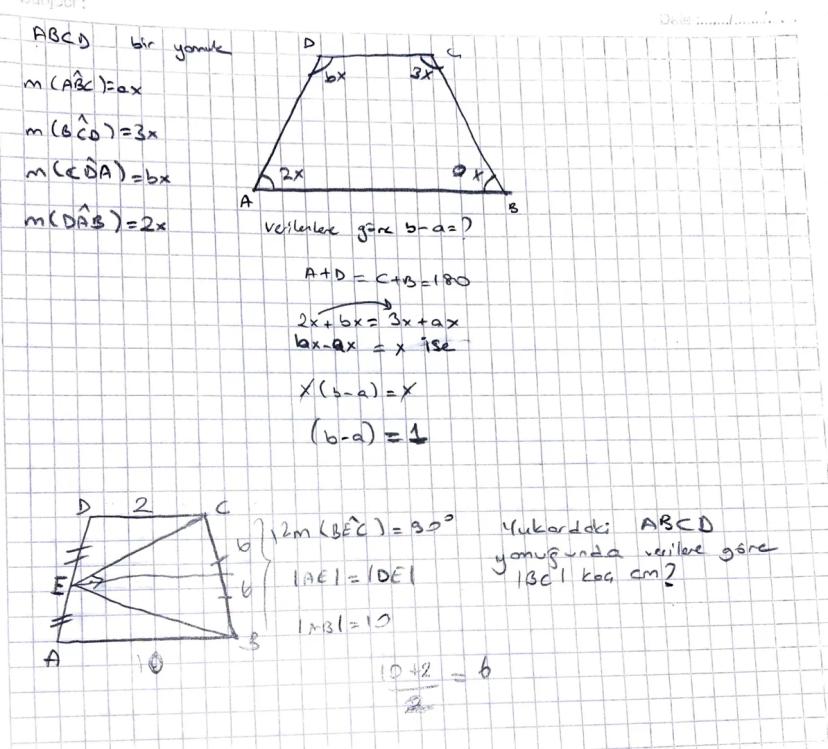 ABCD bir yamuk
m(AB̂C)=ax
m(BĈD)=3x
m(CD̂A)=bx
m(DÂB)=2x
D C
bx 3x
2x x
A B
verilenlere göre b-a=?
A+D = C+B=180
2x+bx= 3x+ax
bx-ax = x ise
x(b-a)=x
(b-a)=1
D 2 C
6
E
6
A 10 B
12
m(BÊC)=90°
|AE|=|DE|
|AB|=10
Yukardaki ABCD
yamuğunda verilere göre
|BC| kaç cm?
10+2 = 6
2